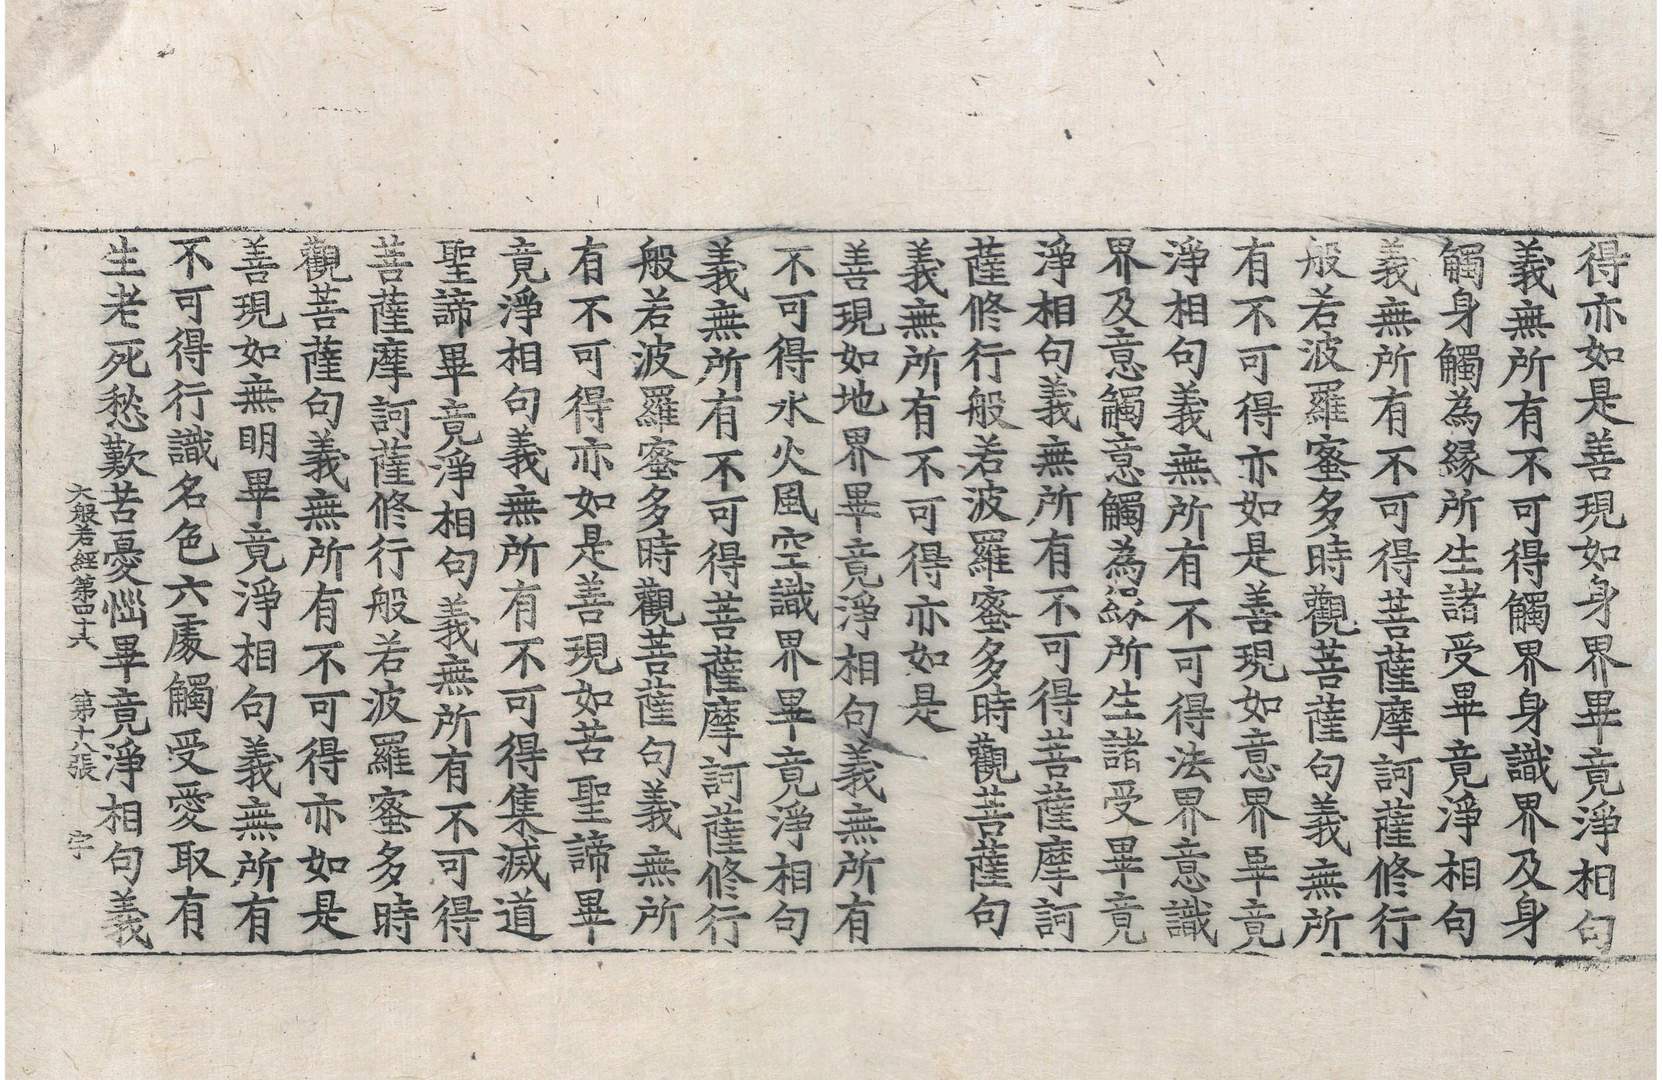 得亦如是善現如身界畢竟淨相句
義無所有不可得觸界身識界及身
觸身觸為緣所生諸受畢竟淨相句
義無所有不可得菩薩摩訶薩修行
般若波羅蜜多時觀菩薩句義無所
有不可得亦如是善現如意界畢竟
淨相句義無所有不可得法界意識
界及意觸意觸為緣所生諸受畢竟
淨相句義無所有不可得菩薩摩訶
薩修行般若波羅蜜多時觀菩薩句
義無所有不可得亦如是
善現如地界畢竟淨相句義無所有
不可得水火風空識界畢竟淨相句
義無所有不可得菩薩摩訶薩修行
般若波羅蜜多時觀菩薩句義無所
有不可得亦如是善現如苦聖諦畢
竟淨相句義無所有不可得集滅道
聖諦畢竟淨相句義無所有不可得
菩薩摩訶薩修行般若波羅蜜多時
觀菩薩句義無所有不可得亦如是
善現如無明畢竟淨相句義無所有
不可得行識名色六處觸受愛取有
生老死愁歎苦憂惱畢竟淨相句義
大般若經第四十六 第十八張 宇